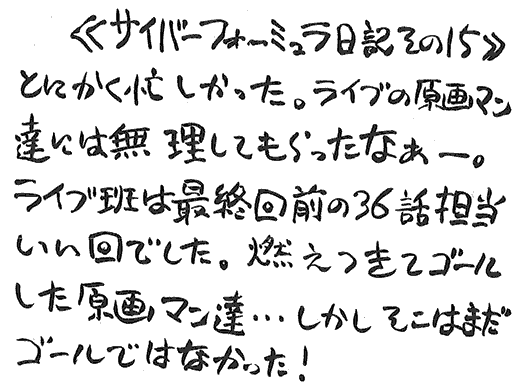 ≪サイバーフォーミュラ日記その15≫
とにかく忙しかった。ライブの原画マン
達には無理してもらったなぁー。
ライブ班は最終回前の36話担当
いい回でした。燃えつきてゴール
した原画マン達…しかしそこはまだ
ゴールではなかった！